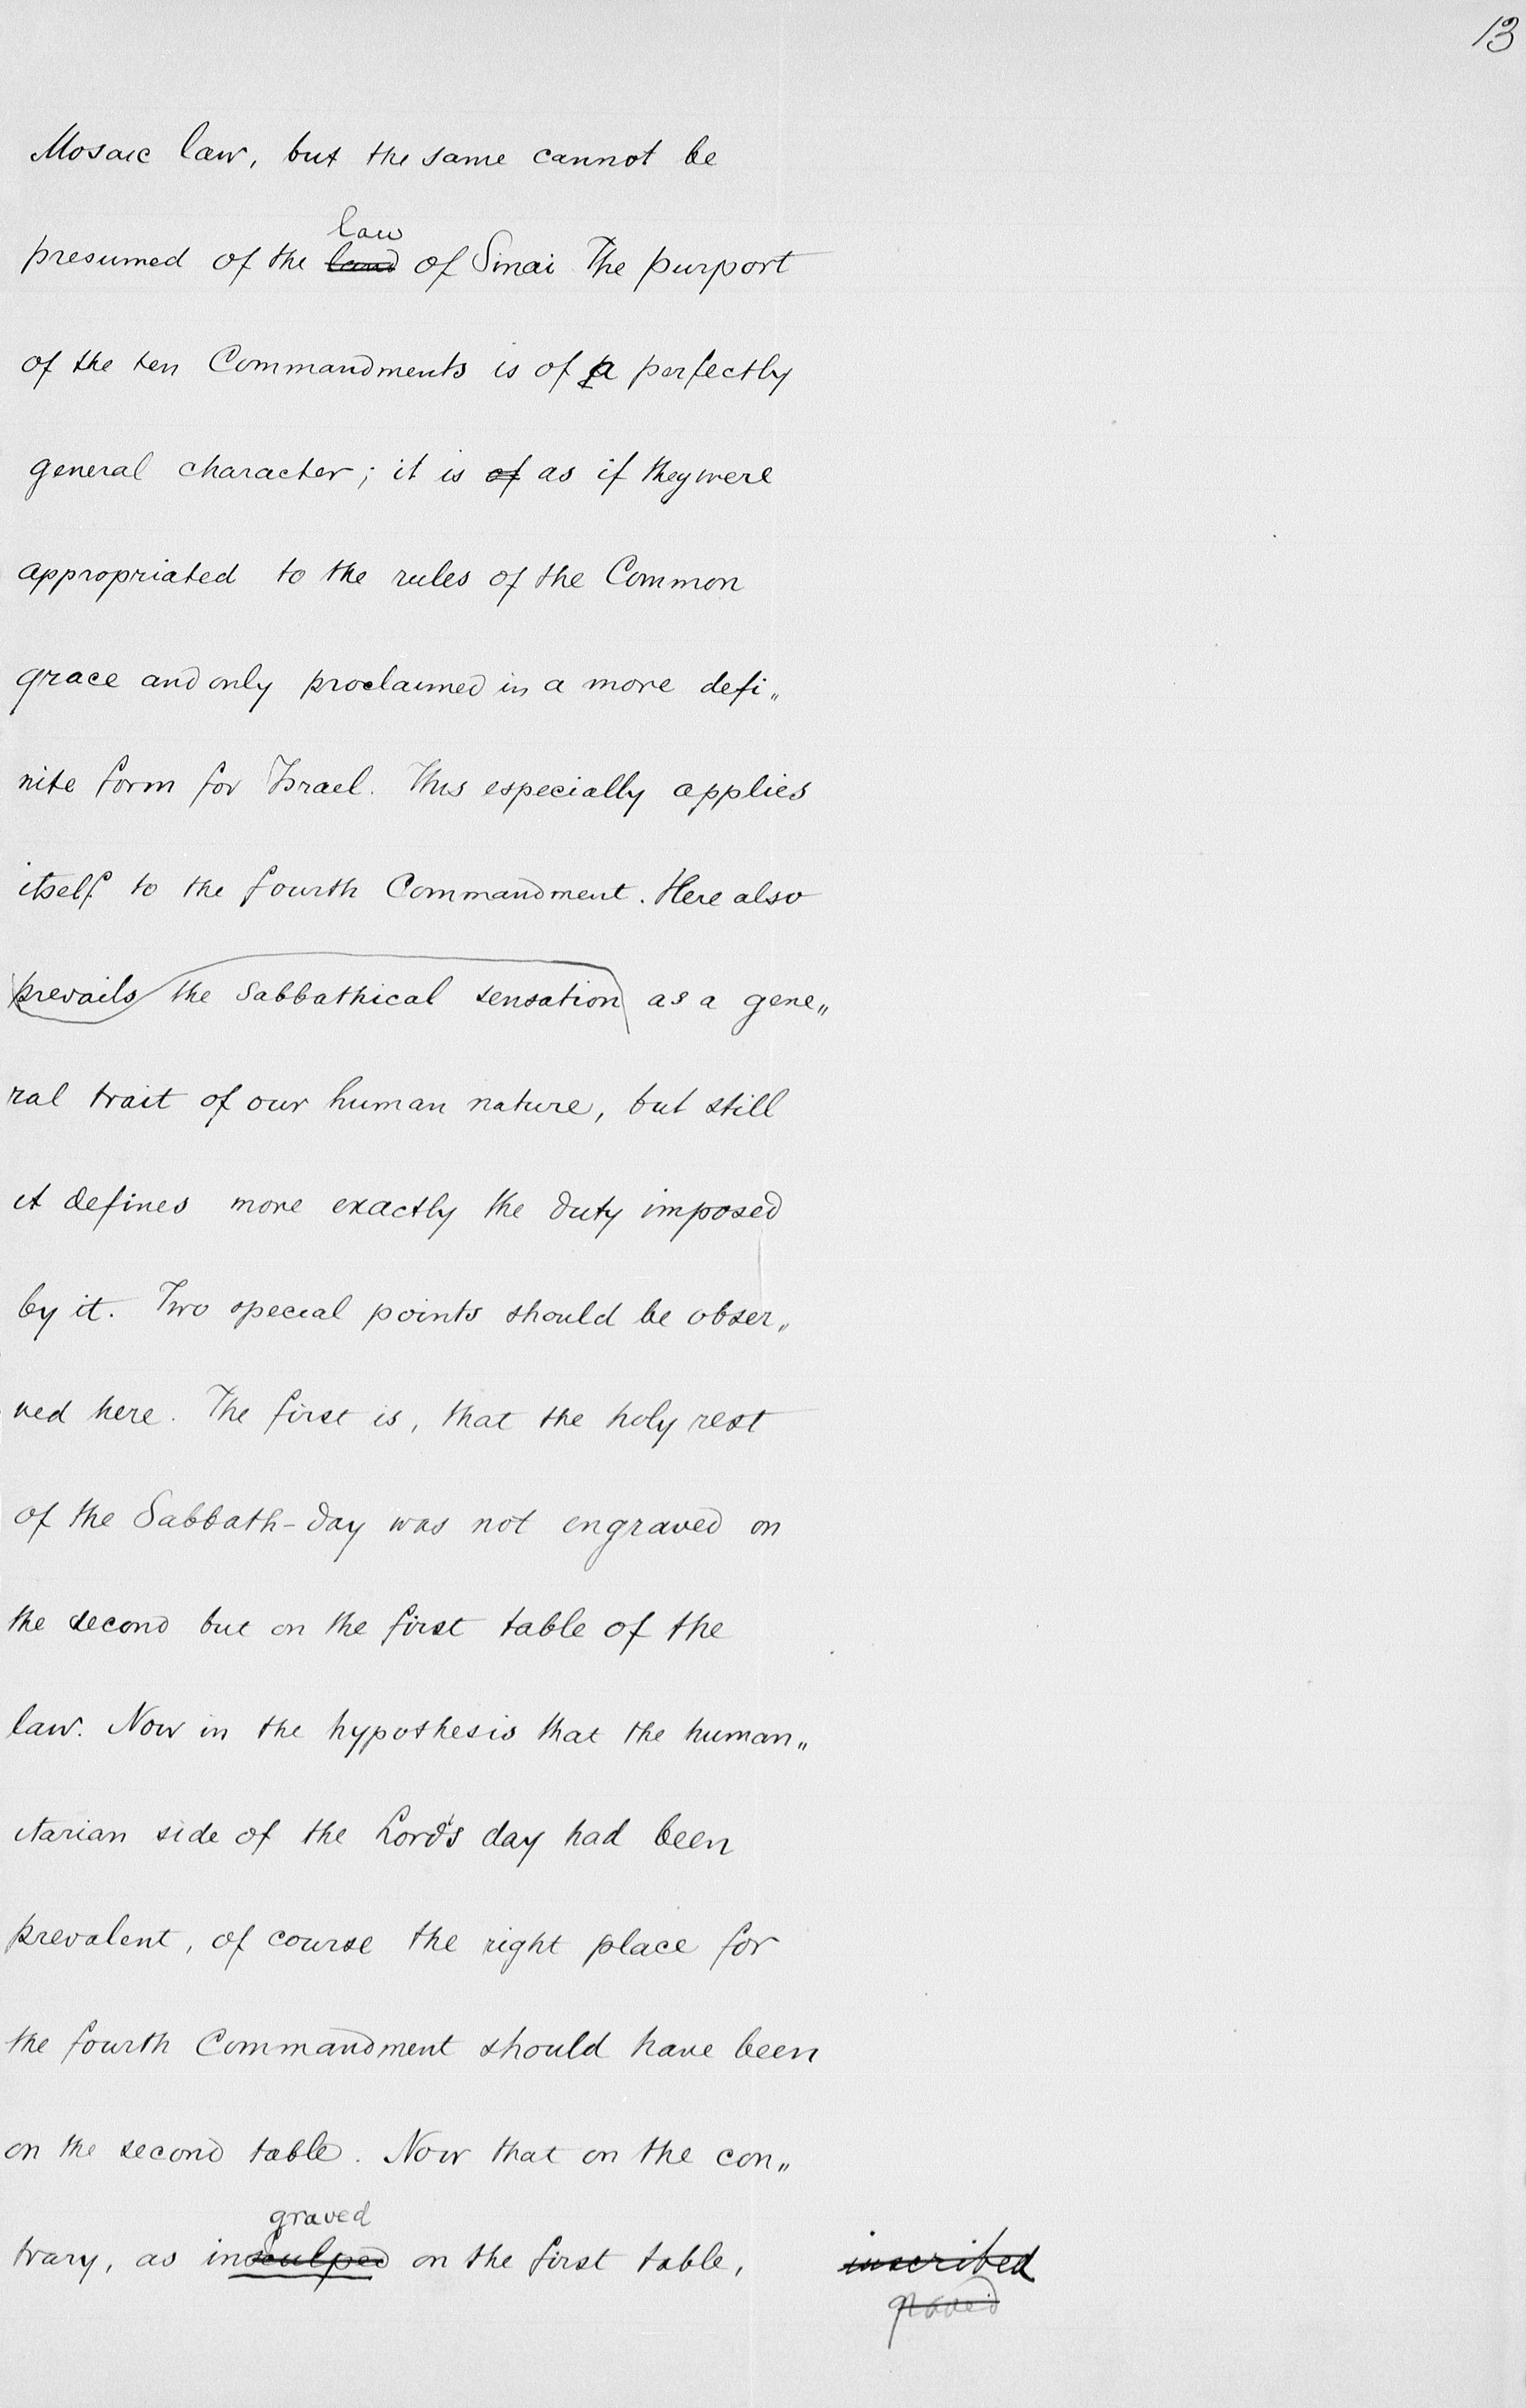 13
Mosaic law, but the same cannot be
law
presumed of the land of Sinai The purport
of the ten Commandments is of a perfectly
general character; it is of as if they were
appropriated to the rules of the Common
grace and only proclaimed in a more defi„
nite form for Israel. This especially applies
itself to the fourth Commandment. Here also
prevails the Sabbathical sensation as a gene„
ral trait of our human nature, but still
it defines more exactly the duty imposed
by it. Two special points should be obser„
ved here. The first is, that the holy rest
of the Sabbath-day was not engraved on
the second but on the first table of the
law. Now in the hypothesis that the human„
itarian side of the Lord's day had been
prevalent, of course the right place for
the fourth Commandment should have been
on the second table. Now that on the con„
graved
trary, as insculped on the first table, inscribed
graved